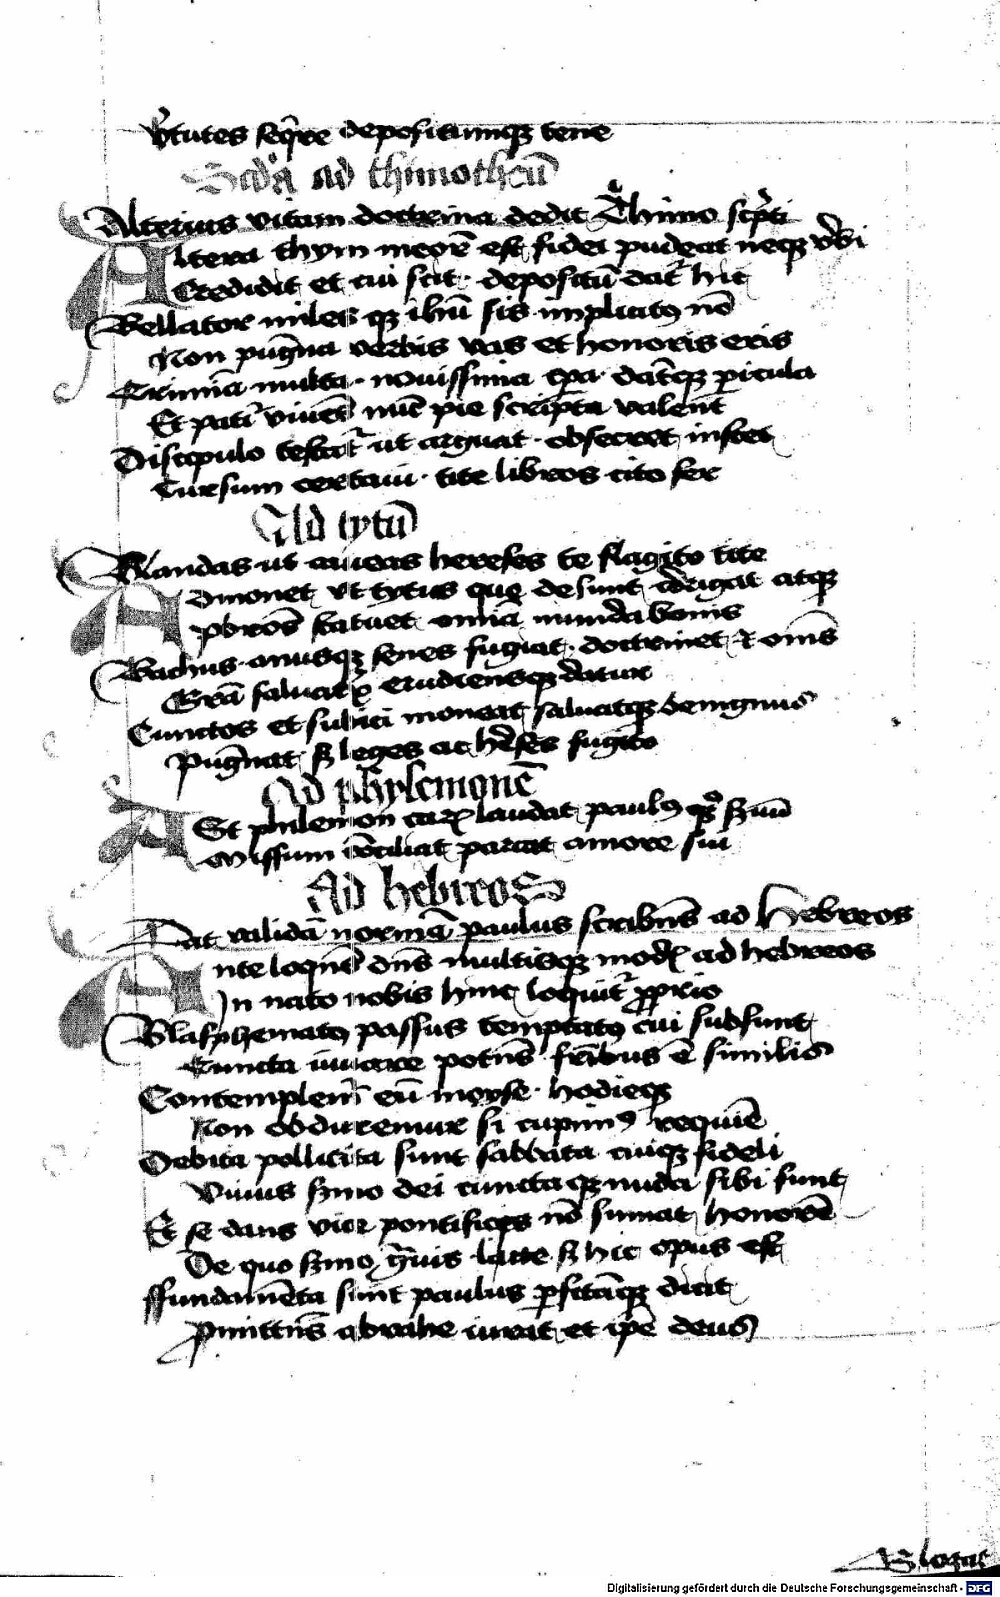 v̕tutes seq̄re depositumqꝫ tene
Scd̕a ad thimotheū
Alterius vitam doctrina dedit Thimo sc̕pti
Altera thym meorē est fidei pudeat neqꝫ v̕bi
Credidit et cui scit · depositū dat̄ hic
Bellator miles qꝫ ihū sis implicatꝰ nō
Non pugna verbis vas et honoris eris
Crimīa multa · nouissima tp̄a · dātqꝫ picula
Et pati viuēt nūc pie scripta valent
Discipulo testat̄ ut arguat · obsecret instet
Cursum certaui · tite libros cito fer
Ad tytū
Blandas ut caueas hereses te flagito tite
Amonet vt tytus que desunt corrigat atqꝫ
pbros statuet omīa munda bonis
Bachus anusqꝫ senes fugiat · doctrinet ⁊ om̄s
Grā saluat̄ erudiensqꝫ datur
Cunctos et subici moneat saluatqꝫ benignus
Pugnat sꝫ leges ac h̄eses fugito
Ad phylemonē
Est philemon laudat paulꝰ
Missum cōciliat parcat amore sui
Ad hebreos
Dat validā normā paulus scribēs ad Hebreos
Ante loquēs dn̄s multisqꝫ modꝭ ad hebreos
In nato nobis hinc loquit̄ proprio
Blasphematꝰ passus temptatꝰ cui subsunt
Cuncta iuuare potens fr̄ibus ē similis
Contemplem̄ eū moyse · hodieqꝫ
Non obduremur si cupimꝰ requiē
Debita pollicita sunt sabbata cuiqꝫ fideli
Viuus s̄mo dei cunctaqꝫ nuda sibi sunt
Et se dans vice pontificis nō sumat honorē
De quo s̄mo gr̄uis lacte sꝫ hic opus est
ffundamēta sunt paulus pfectāqꝫ dicit
Pmittēs abrahe iurat et ip̄e deus
Digitalisierung gefördert durch die Deutsche Forschungsgemeinschaft - DFG